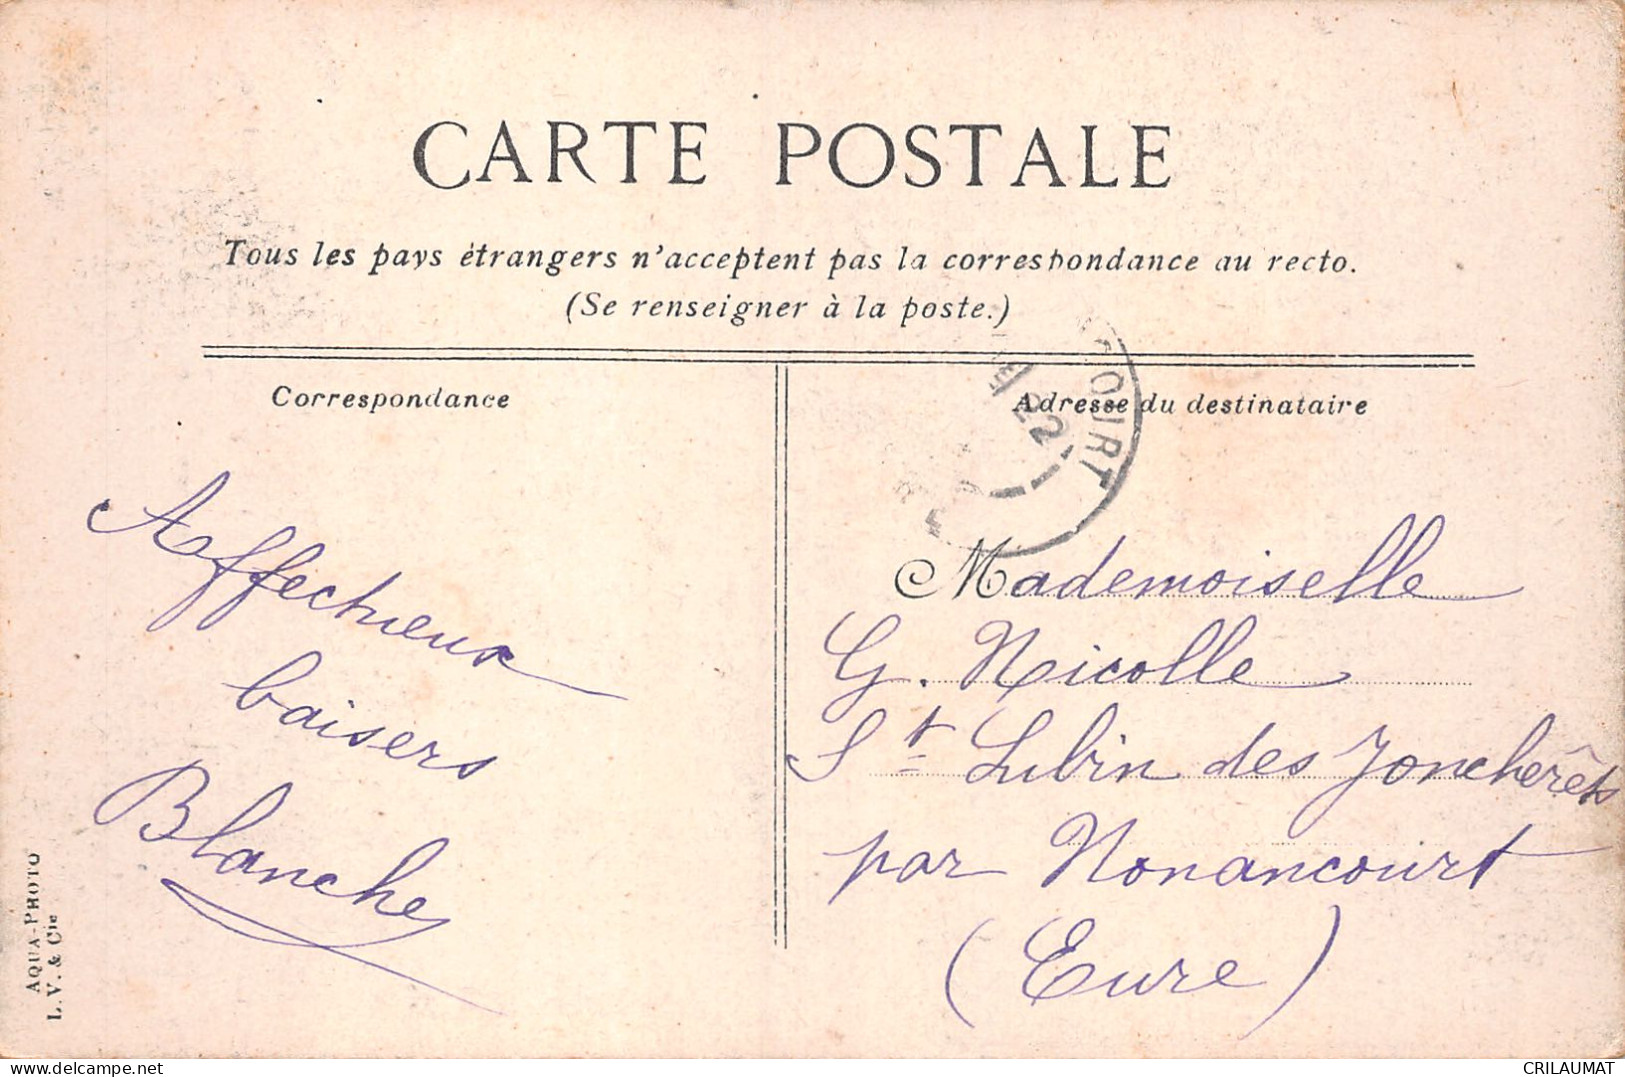 CARTE POSTALE
Tous les pays étrangers n'acceptent pas la correspondance au recto.
(Se renseigner à la poste.)
Correspondance
Adresse du destinataire
OURT
22
Affectueux
baisers
Blanche
Mademoiselle
G. Nicolle
St Lubin des Jonchêrêts
par Nonancourt
(Eure)
AQUA-PHOTO
L. V. & Cie
delcampe.net
CRILAUMAT